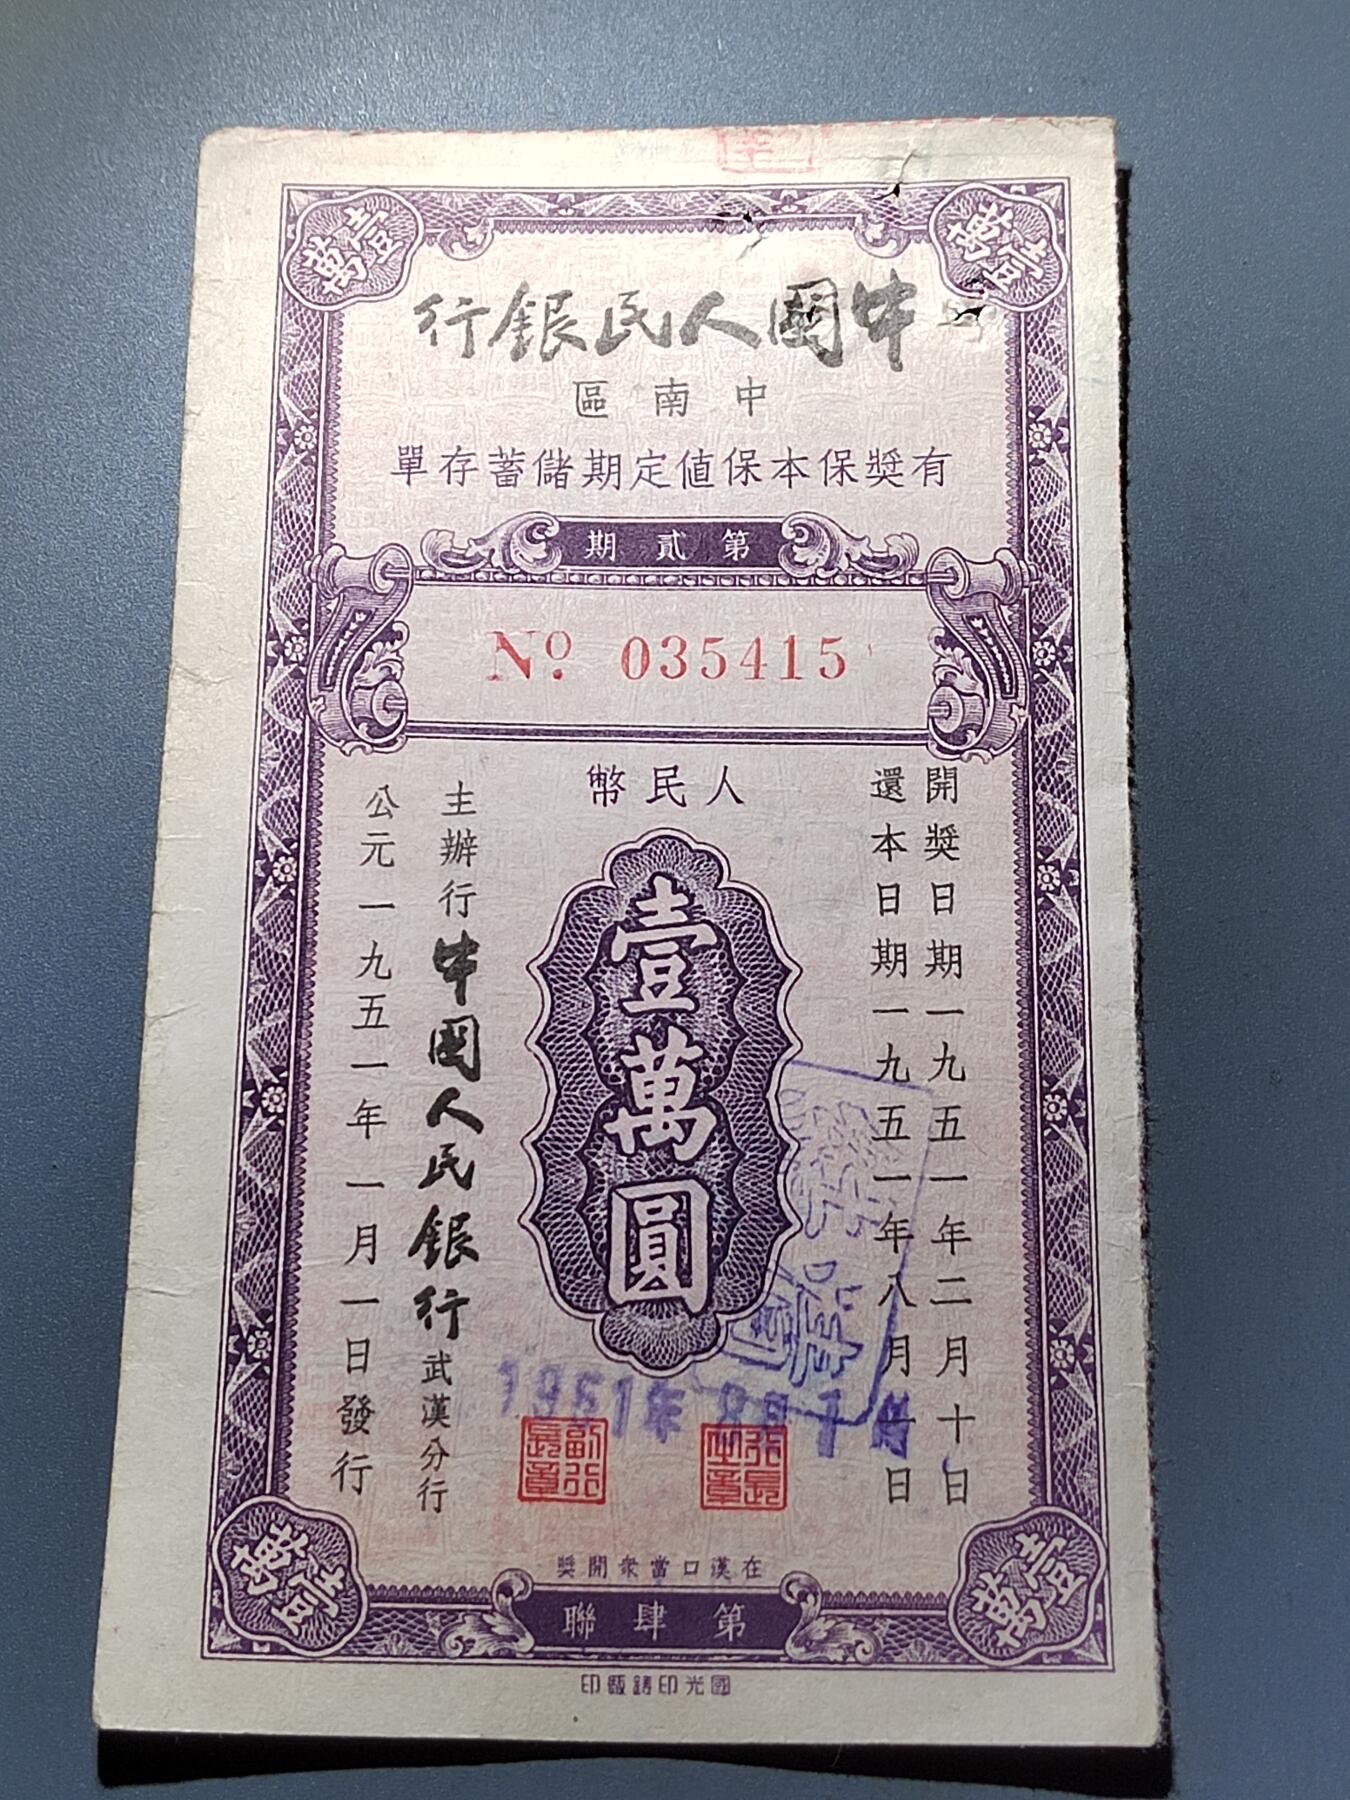 壹萬
壹萬
中國人民銀行
中南區
有獎保本保值定期儲蓄存單
第貳期
No. 035415
人民幣
壹萬圓
開獎日期一九五一年二月十日
還本日期一九五一年八月一日
主辦行中國人民銀行武漢分行
公元一九五一年一月一日發行
1951年8月1
行長之章
副行長章
在漢口當衆開獎
壹萬
第肆聯
壹萬
國光印鑄廠印